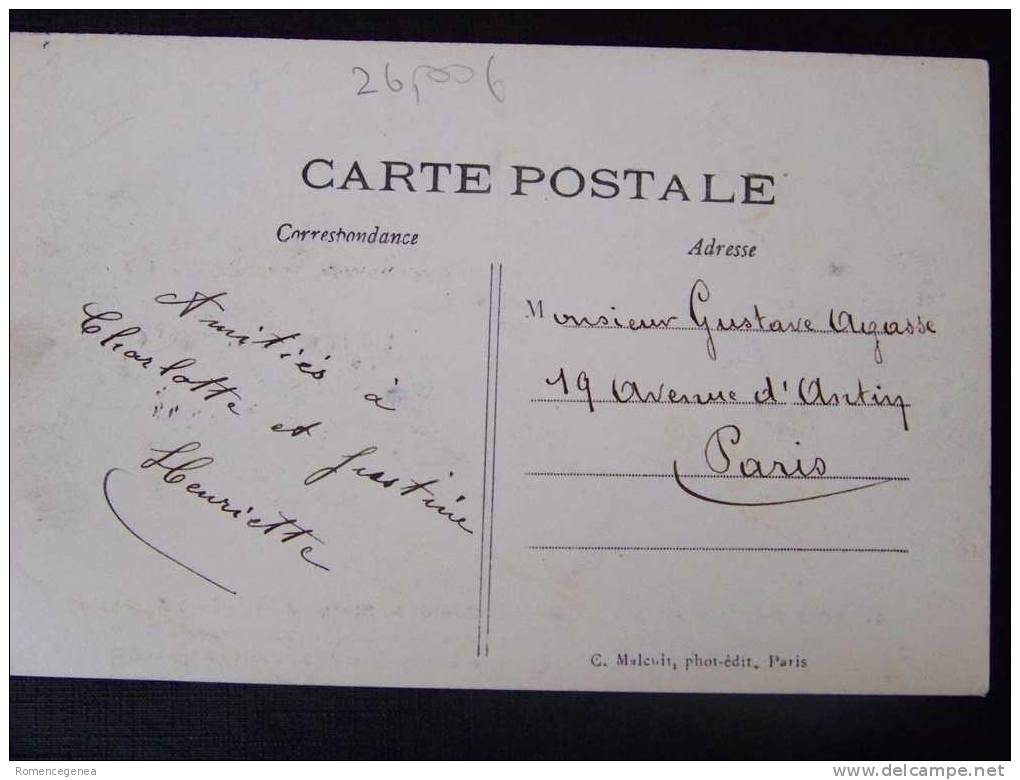 26,006
CARTE POSTALE
Correspondance
Adresse
Amitiés à
Charlotte et Justine
Henriette
Monsieur Gustave Agasse
19 Avenue d'Antin
Paris
C. Malcuit, phot-édit. Paris
Romencegenea
delcampe.net